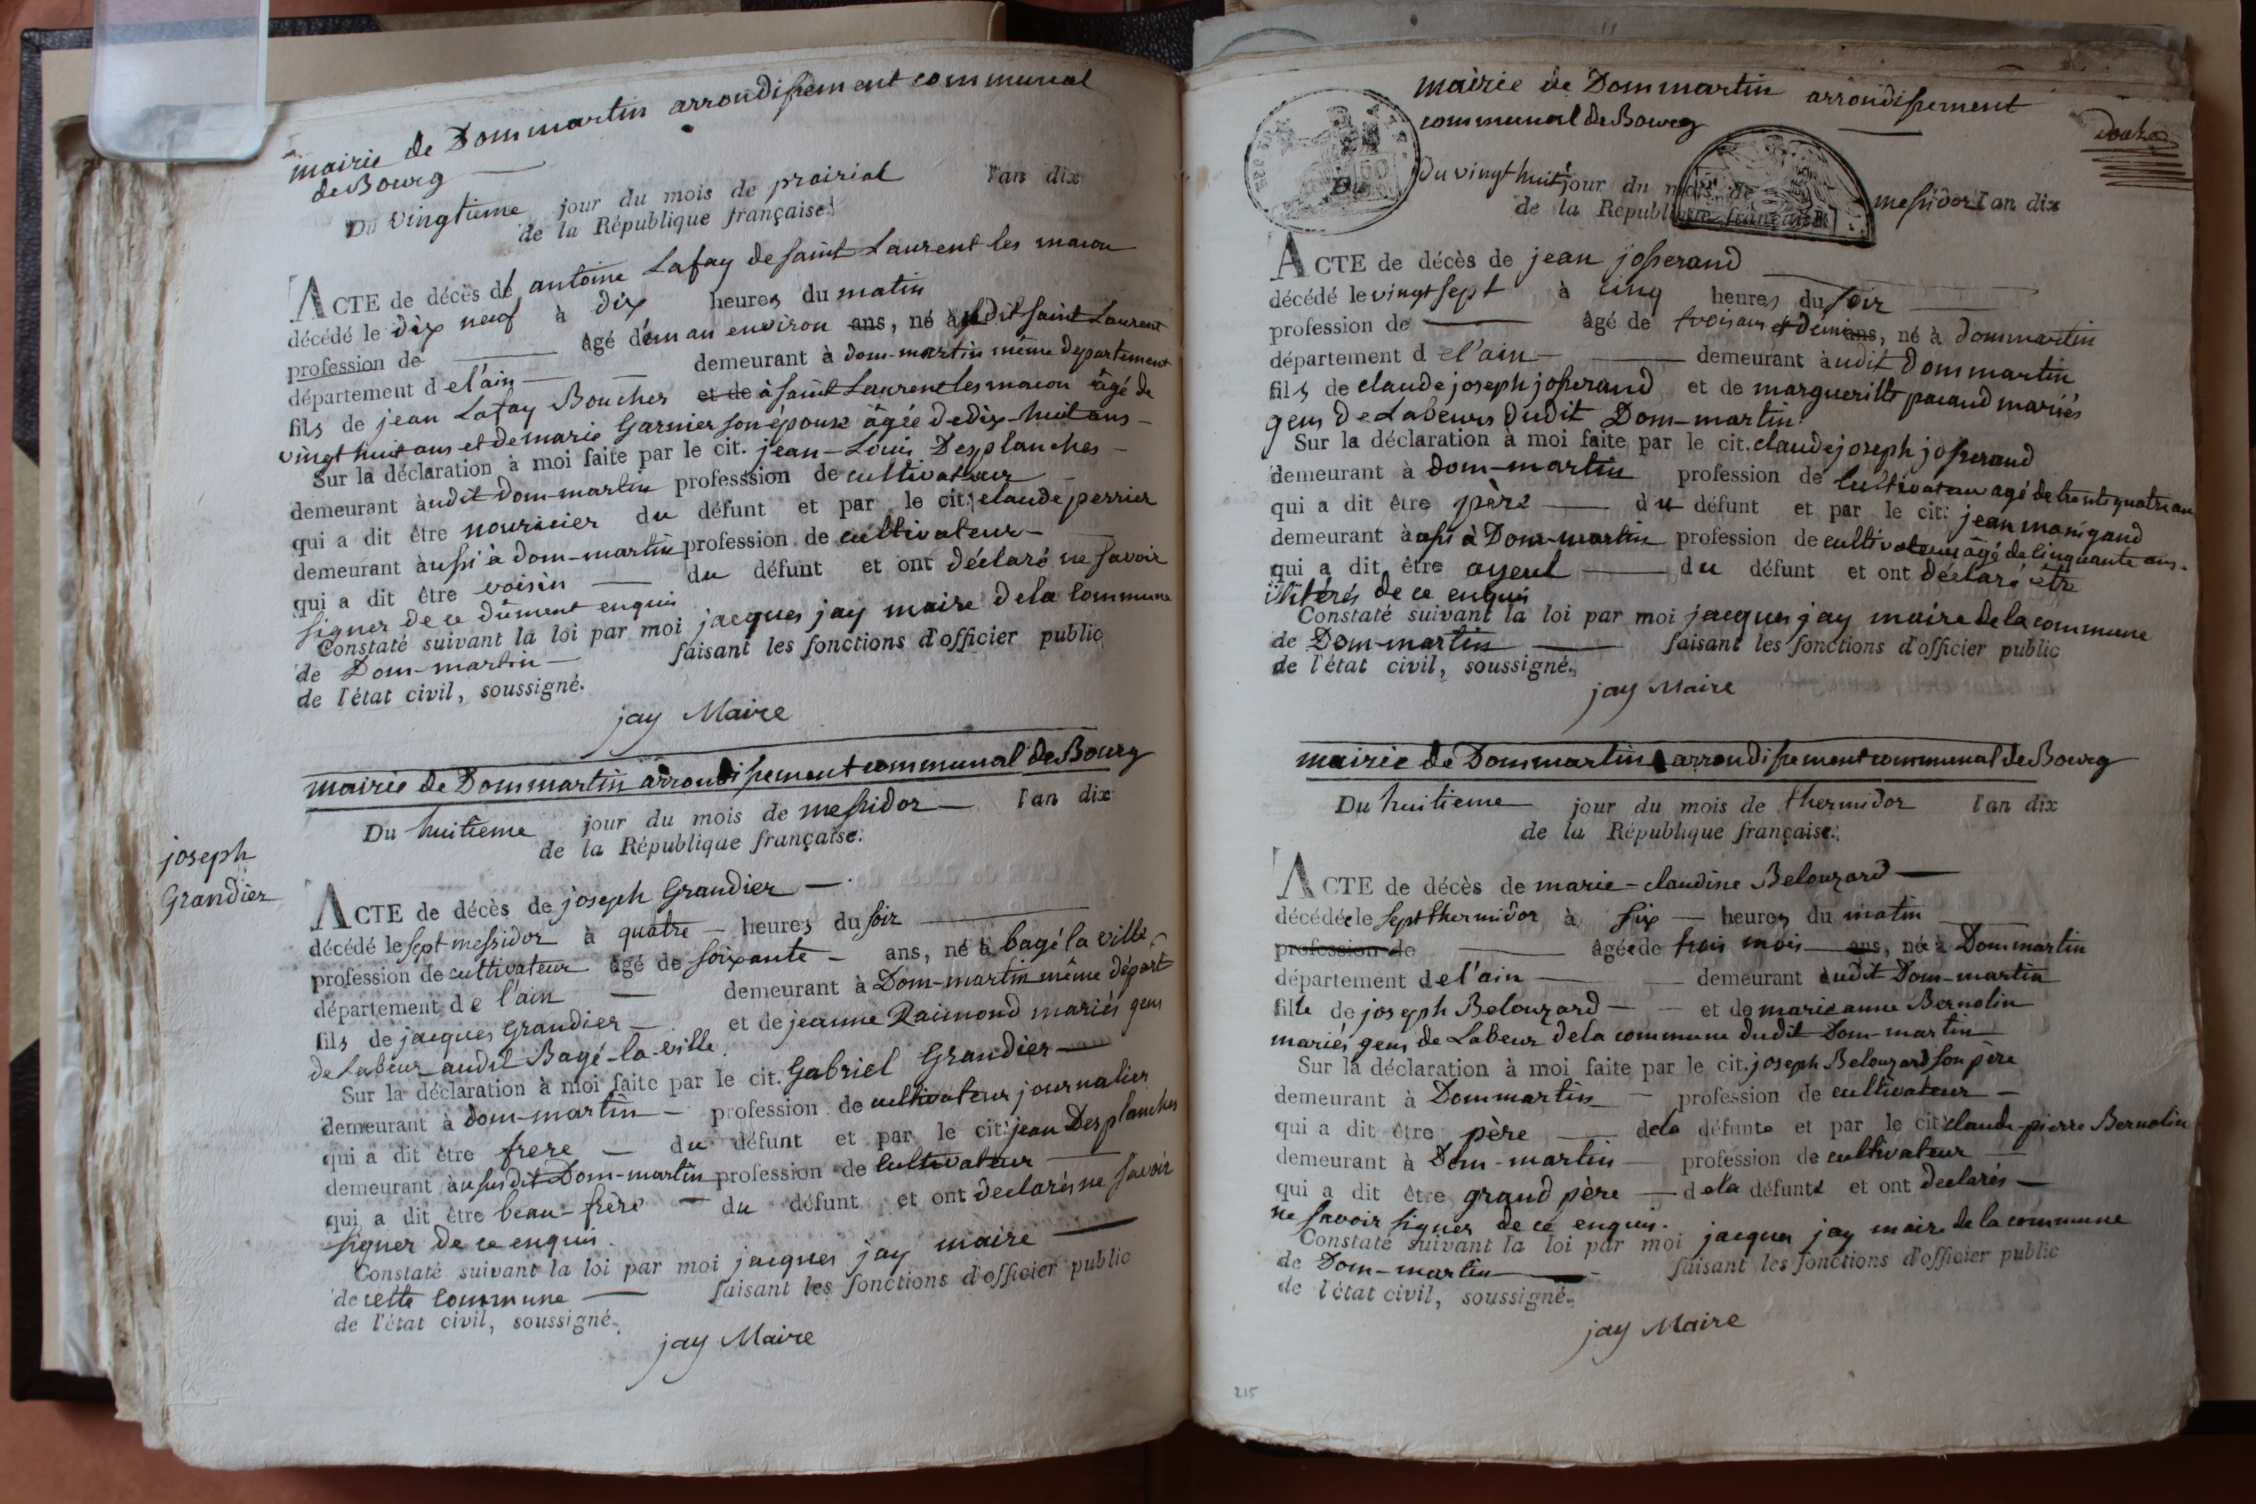 mairie de Dommartin arrondissement communal
de Bourg
Du vingtieme jour du mois de prairial l'an dix
de la République française.
ACTE de décès de antoine Lafay de saint Laurent les macon
décédé le dix neuf à dix heures du matin
profession de âgé d'un an environ ans, né à sudit saint Laurent
département de l'ain demeurant à dom-martin même departement
fils de jean Lafay Boucher et de à saint Laurent les macon âgé de
vingt huit ans et de marie Garnier son épouse âgée de dix-huit ans
Sur la déclaration à moi faite par le cit. jean-Louis Desplanches
demeurant audit dom-martin professsion de cultivateur
qui a dit être nouricier du défunt et par le cit. claude perrier
demeurant aussi à dom-martin profession de cultivateur
qui a dit être voisin du défunt et ont déclaré ne savoir
signer de ce dûment enquis
Constaté suivant la loi par moi jacques jay maire de la commune
de Dom-martin faisant les fonctions d'officier public
de l'état civil, soussigné.
jay Maire
mairie de Dommartin arrondissement communal de Bourg
Du huitieme jour du mois de messidor l'an dix
de la République française.
joseph
Grandier
ACTE de décès de joseph Grandier
décédé le sept messidor à quatre heures du soir
profession de cultivateur âgé de soixante ans, né à bagé la ville
département de l'ain demeurant à Dom-martin même départ
fils de jacques Grandier et de jeanne Raimond mariés gens
de Labeur audit Bagé-la-ville
Sur la déclaration à moi faite par le cit. Gabriel Grandier
demeurant à dom-martin profession de cultivateur journalier
qui a dit être frere du défunt et par le cit. jean Desplanches
demeurant au susdit Dom-martin profession de cultivateur
qui a dit être beau-frère du défunt et ont declarés ne savoir
signer de ce enquis.
Constaté suivant la loi par moi jacques jay maire
de cette commune faisant les fonctions d'officier public
de l'état civil, soussigné.
jay Maire
mairie de Dommartin arrondissement
communal de Bourg
Du du vingt huit jour du mois de messidor l'an dix
de la République française
ACTE de décès de jean josserand
décédé le vingt sept à cinq heures du soir
profession de âgé de trois ans et demi ans, né à dommartin
département de l'ain demeurant audit Dommartin
fils de claude joseph josserand et de margueritte pacaud mariés
gens de Labeurs dudit Dom-martin
Sur la déclaration à moi faite par le cit. claude joseph josserand
demeurant à dom-martin profession de Cultivateur agé de trente quatre an
qui a dit être père du défunt et par le cit. jean manigand
demeurant aussi à Dom-martin profession de cultivateur âgé de cinquante ans.
qui a dit être ayeul du défunt et ont déclaré être
illitérés de ce enquis
Constaté suivant la loi par moi jacques jay maire de la commune
de Dom-martin faisant les fonctions d'officier public
de l'état civil, soussigné.
jay Maire
mairie de Dommartin arrondissement communal de Bourg
Du huitieme jour du mois de thermidor l'an dix
de la République française.
ACTE de décès de marie-claudine Belouzard
décédée le sept thermidor à six heures du matin
profession de âgée de trois mois ans, née à Dommartin
département de l'ain demeurant audit Dom-martin
fille de joseph Belouzard et de marie anne Bernolin
mariés gens de Labeur de la commune dudit Dom-martin
Sur la déclaration à moi faite par le cit. joseph Belouzard son père
demeurant à Dommartin profession de cultivateur
qui a dit être père de la défunte et par le cit. claude-pierre Bernolin
demeurant à Dom-martin profession de cultivateur
qui a dit être grand père de la défunte et ont declarés
ne savoir signer de ce enquis.
Constaté suivant la loi par moi jacques jay maire de la commune
de Dom-martin faisant les fonctions d'officier public
de l'état civil, soussigné.
jay Maire
215